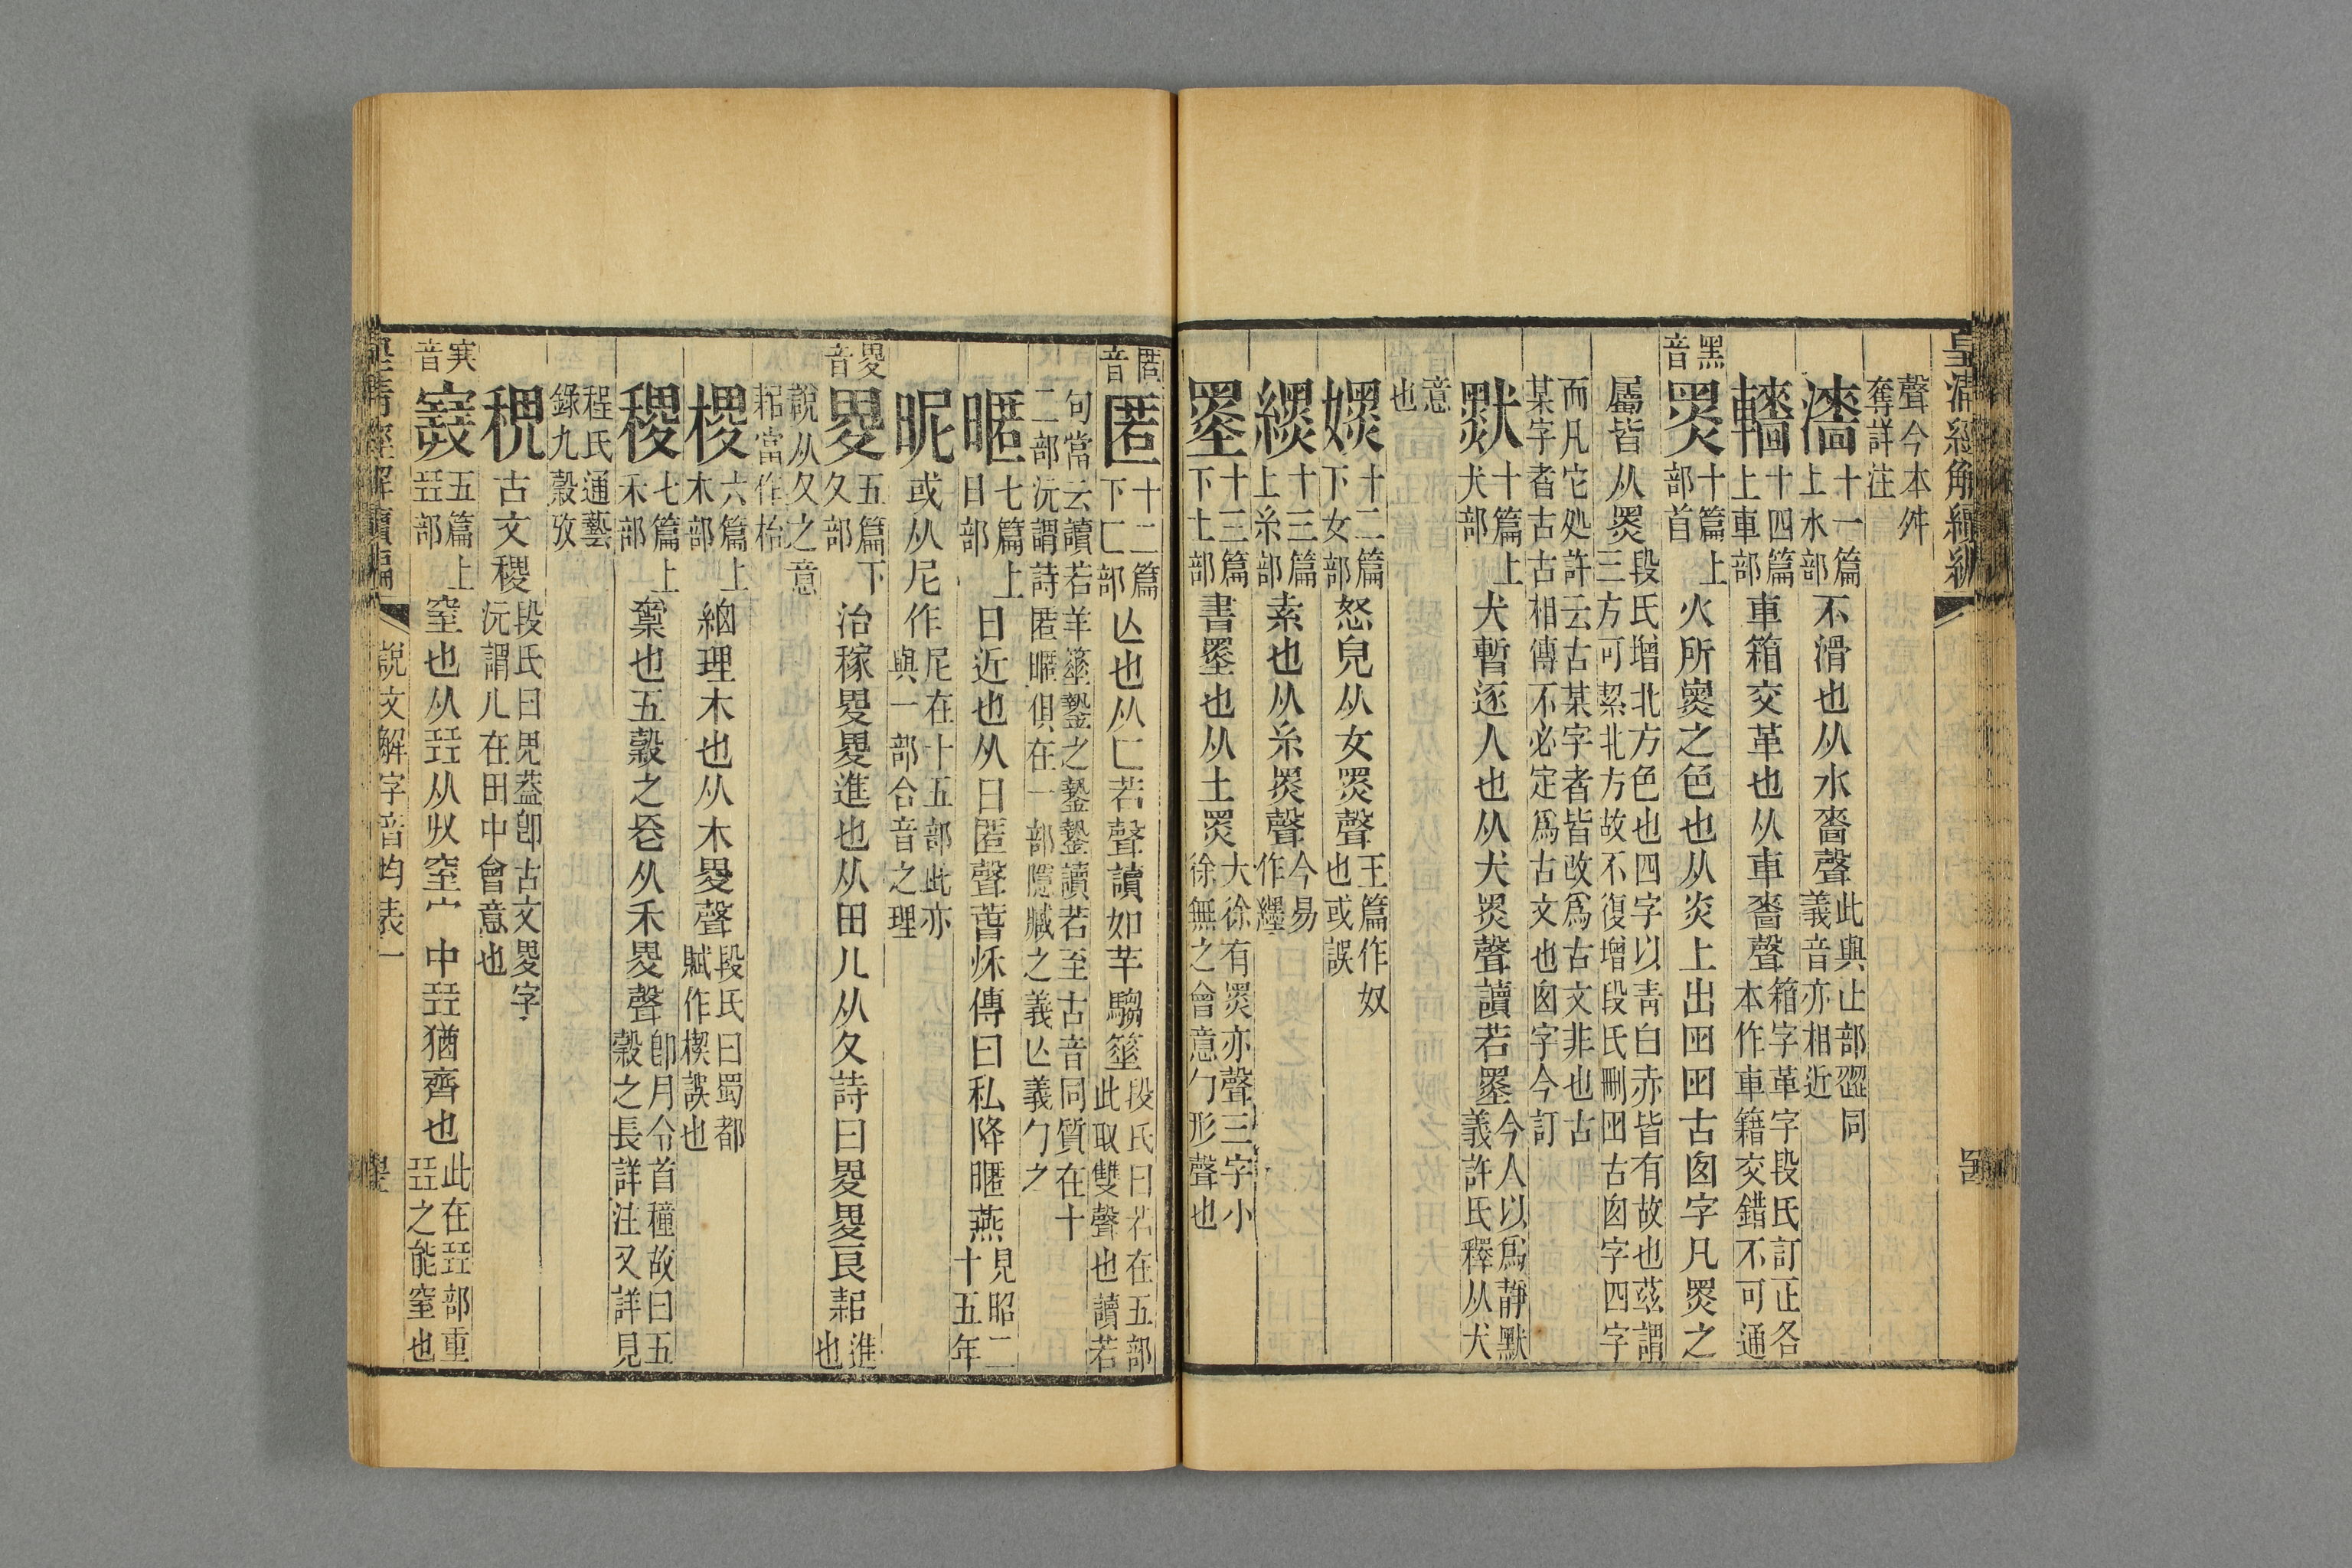 皇清經解續編
聲今本舛
奪詳注
濇十一篇上水部不滑也从水嗇聲此與止部歰同義音亦相近
轖十四篇上車部車箱交革也从車嗇聲箱字革字段氏訂正各本作車籍交錯不可通
黑音
𪐗十篇上部首火所熏之色也从炎上出囱囱古囪字凡𪐗之
屬皆从𪐗段氏增北方色也四字以靑白赤皆有故也茲謂三方可絜北方故不復增段氏刪囱古囪字四字
而凡它処許云古某字者皆改爲古文非也古某字者古古相傳不必定爲古文也囪字今訂
默十篇上犬部犬暫逐人也从犬𪐗聲讀若墨今人以爲靜默義許氏釋从犬
意也
嬺十二篇下女部怒皃从女𪐗聲王篇作奴也或誤
纆十三篇上糸部素也从糸𪐗聲今易作纆
墨十三篇下土部書墨也从土𪐗大徐有𪐗亦聲三字小徐無之會意勹形聲也
匿音
匿十二篇下匸部亾也从匸若聲讀如羊騶箠段氏曰若在五部此取雙聲也讀若
句當云讀若羊箠鏊之鏊鏊讀若至古音同質在十二部沅謂詩匿暱俱在一部隱臧之義亾義勹之
暱七篇上日部日近也从日匿聲萅秌傳曰私降暱燕見昭二十五年
昵或从尼作尼在十五部此亦與一部合音之理
畟音
畟五篇下夊部治稼畟畟進也从田儿从夊詩曰畟畟良耜進也
說从夊之意
耜當作枱
椶六篇上木部細理木也从木畟聲段氏曰蜀都賦作楔誤也
稷七篇上禾部𪗉也五穀之長从禾畟聲卽月令首穜故曰五穀之長詳注又詳見
程氏通藝錄九穀攷
䄒古文稷段氏曰㚇葢卽古文畟字沅謂儿在田中會意也
㝙音
㝙五篇上㠭部窒也从㠭从廾窒宀中㠭猶齊也此在㠭部重㠭之能窒也
說文解字音均表一